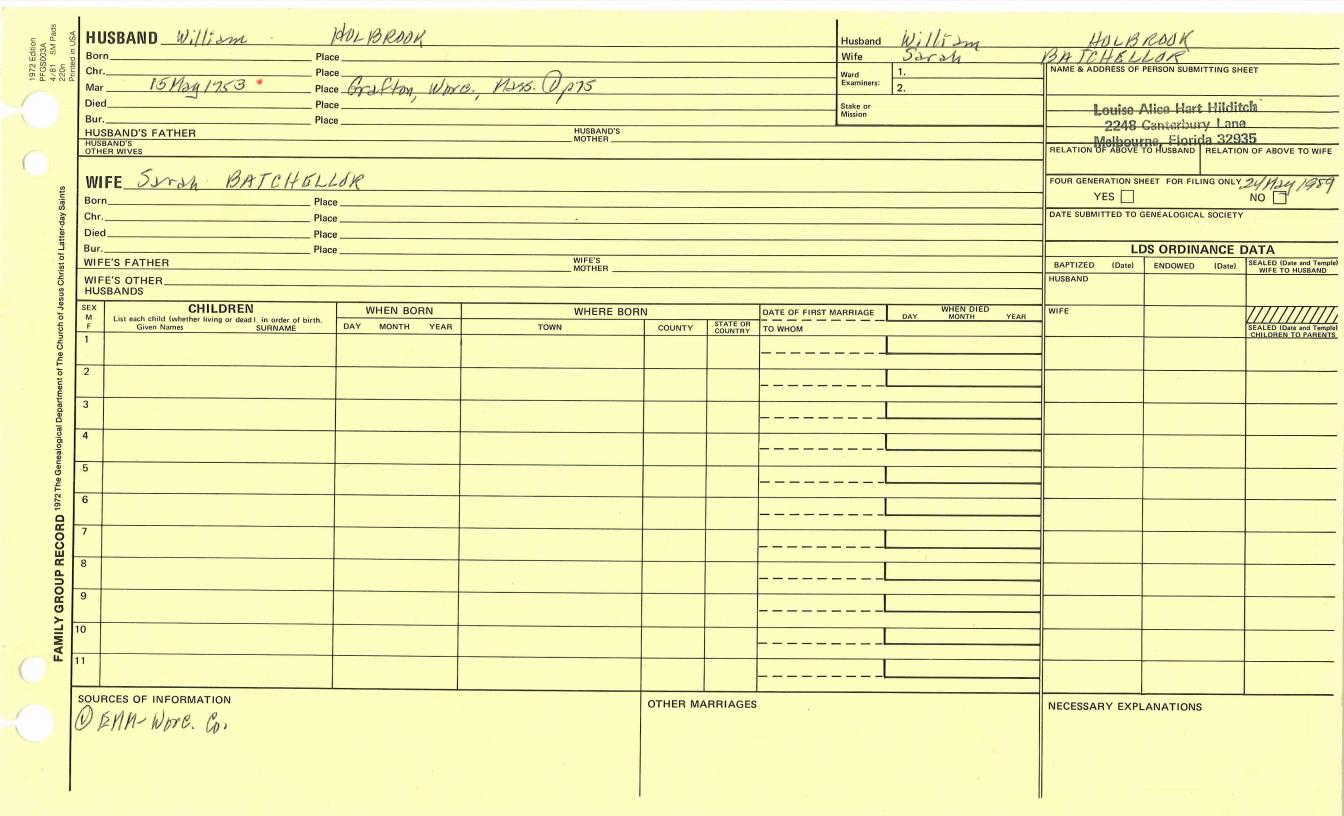 1972 Edition
PFGS003A
4/81 5M Pads
220n
Printed in USA
FAMILY GROUP RECORD 1972 The Genealogical Department of The Church of Jesus Christ of Latter-day Saints
HUSBAND William HOLBROOK
Born Place
Chr. Place
Mar 15 May 1753 * Place Grafton, Worc., Mass. ① p75
Died Place
Bur. Place
HUSBAND'S FATHER HUSBAND'S MOTHER
HUSBAND'S OTHER WIVES
WIFE Sarah BATCHELLOR
Born Place
Chr. Place
Died Place
Bur. Place
WIFE'S FATHER WIFE'S MOTHER
WIFE'S OTHER HUSBANDS
Husband William HOLBROOK
Wife Sarah BATCHELLOR
Ward Examiners: 1.
2.
Stake or Mission
NAME & ADDRESS OF PERSON SUBMITTING SHEET
Louise Alice Hart Hilditch
2248 Canterbury Lane
Melbourne, Florida 32935
RELATION OF ABOVE TO HUSBAND RELATION OF ABOVE TO WIFE
FOUR GENERATION SHEET FOR FILING ONLY 24 May 1989
YES NO
DATE SUBMITTED TO GENEALOGICAL SOCIETY
LDS ORDINANCE DATA
BAPTIZED (Date) ENDOWED (Date) SEALED (Date and Temple) WIFE TO HUSBAND
HUSBAND
WIFE
SEALED (Date and Temple) CHILDREN TO PARENTS
SEX M F
CHILDREN
List each child (whether living or dead) in order of birth.
Given Names SURNAME
WHEN BORN
DAY MONTH YEAR
WHERE BORN
TOWN COUNTY STATE OR COUNTRY
DATE OF FIRST MARRIAGE
TO WHOM
WHEN DIED
DAY MONTH YEAR
1
2
3
4
5
6
7
8
9
10
11
SOURCES OF INFORMATION
① EMM-Worc. Co.
OTHER MARRIAGES
NECESSARY EXPLANATIONS